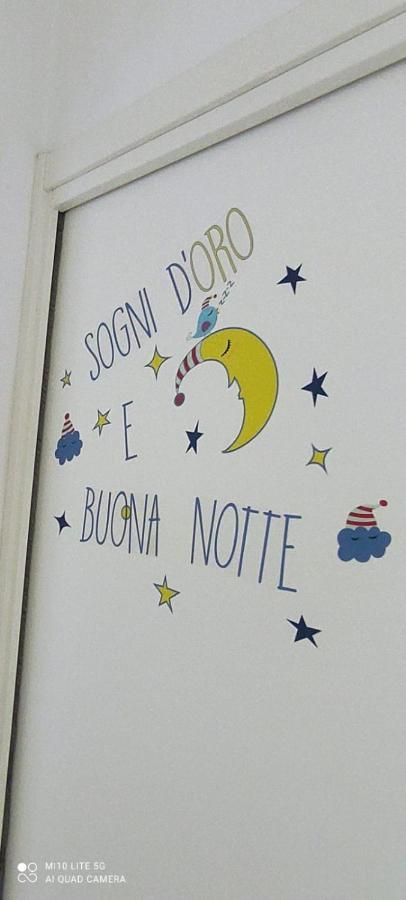 SOGNI D'ORO
zzz
E
BUONA NOTTE
MI 10 LITE 5G
AI QUAD CAMERA